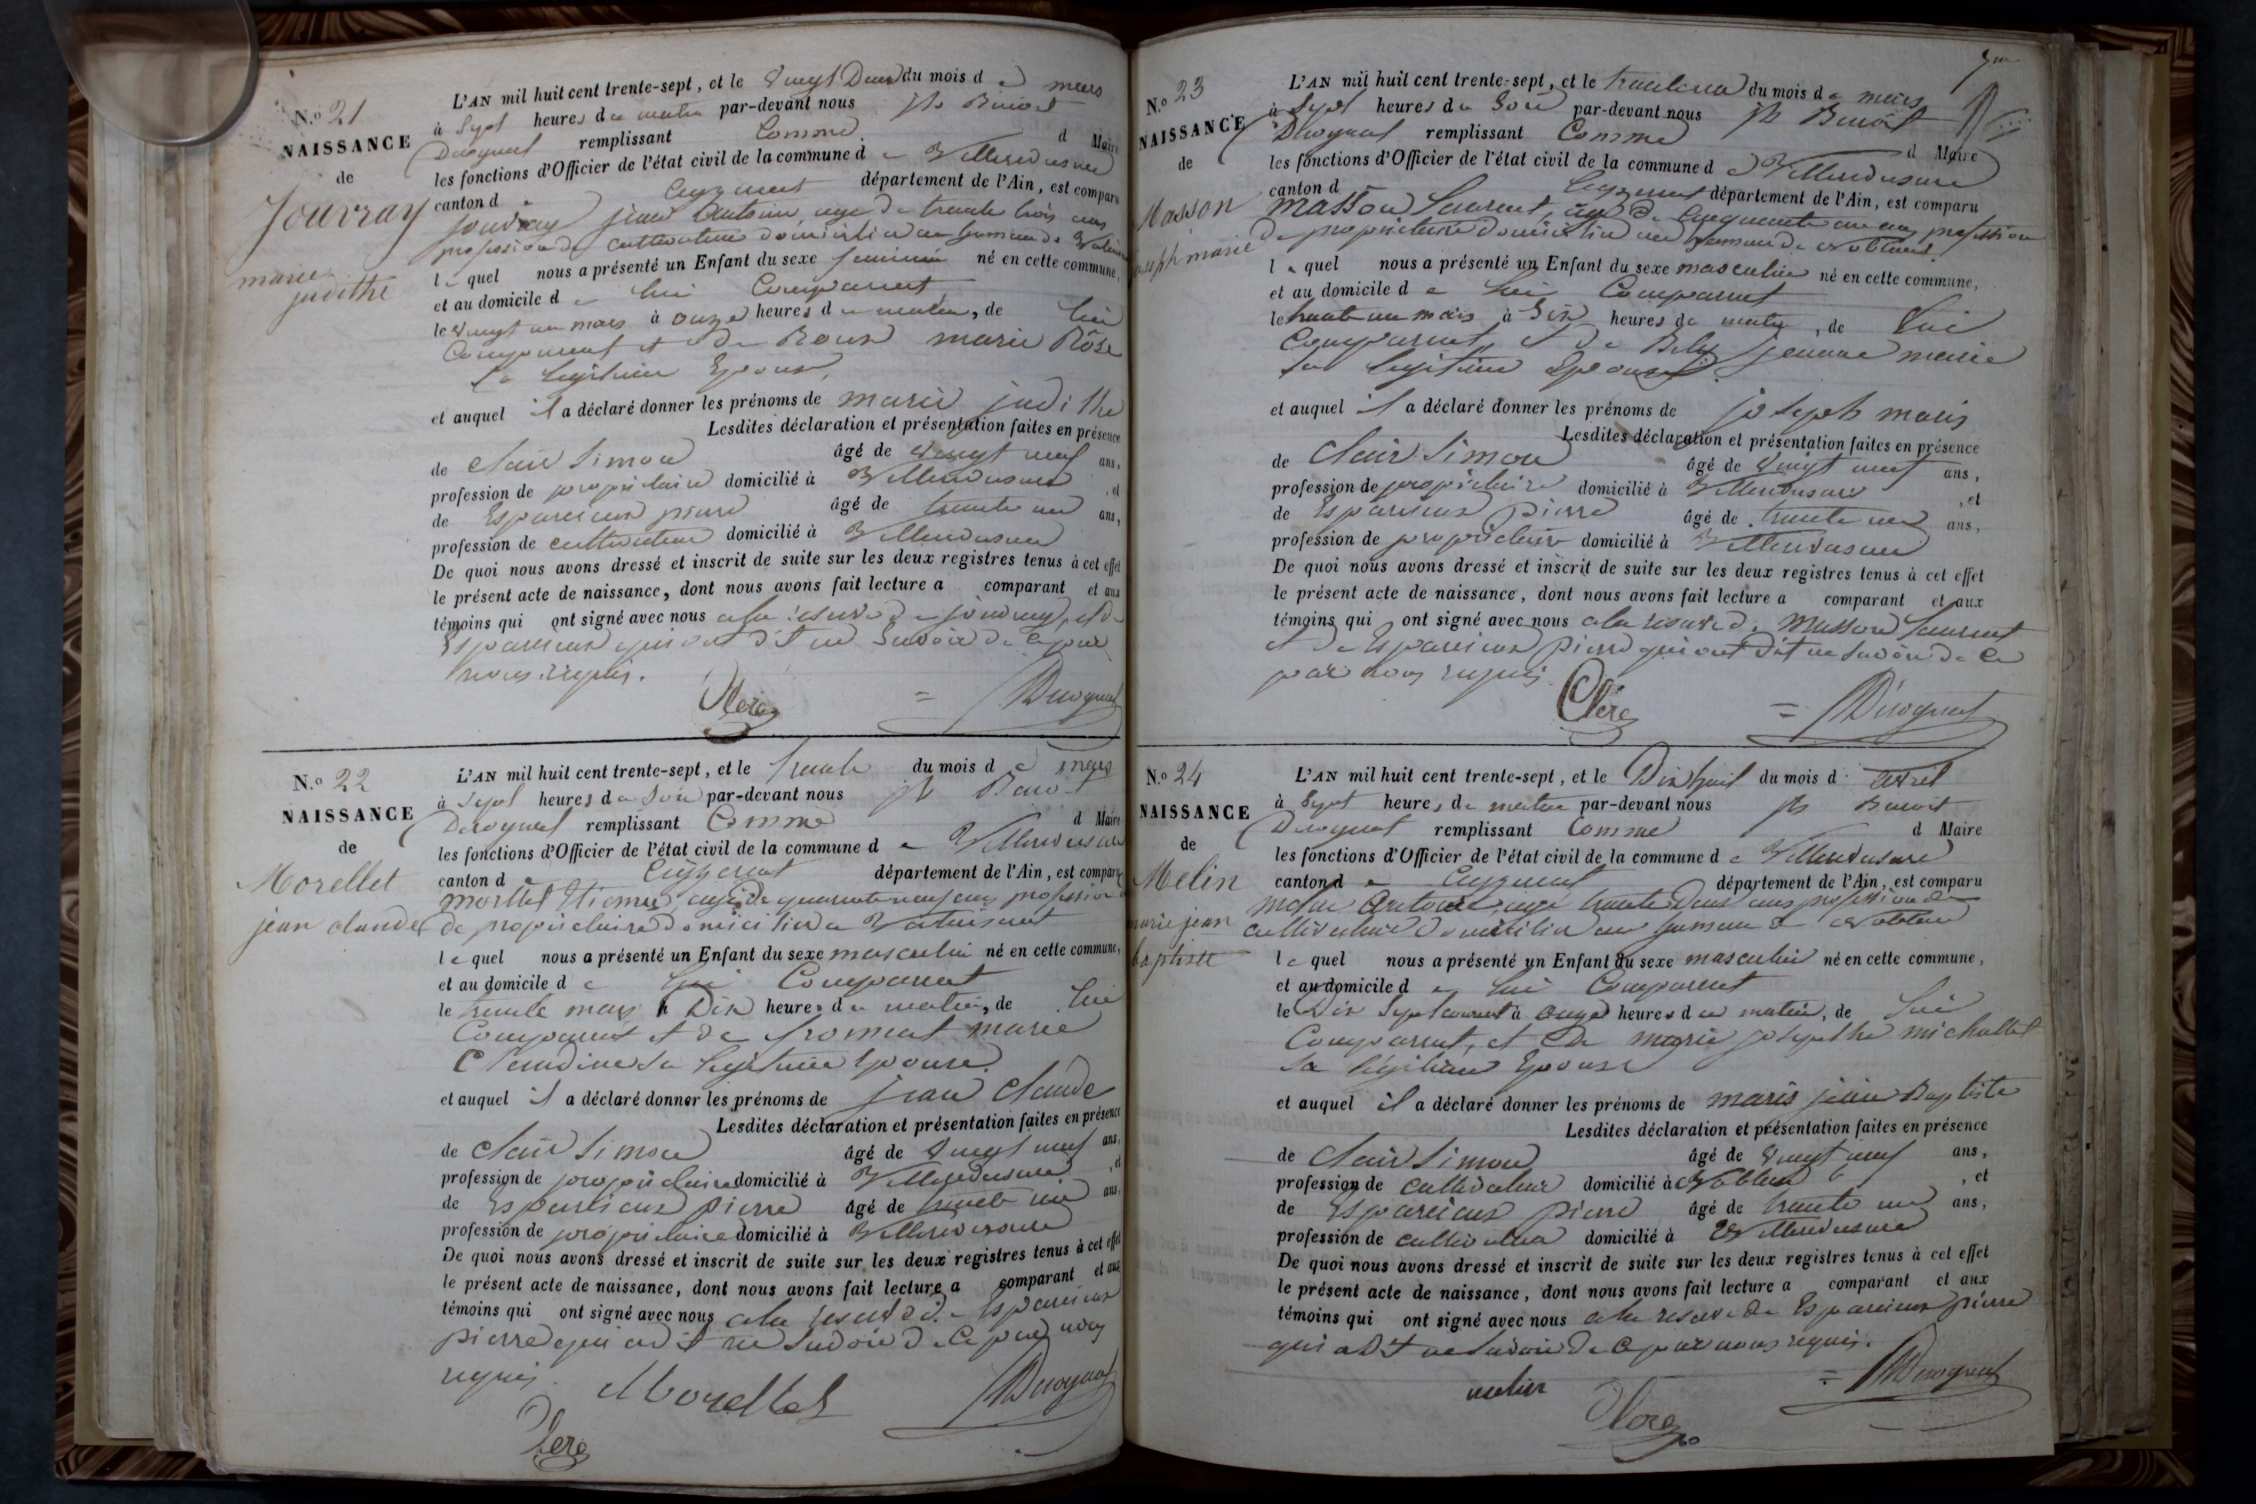 N.o 21
NAISSANCE
de
Jouvray
marie
judithe
L'AN mil huit cent trente-sept, et le vingt Deux du mois de mars
à Sept heures du matin par-devant nous jh Benoit
Duroquat remplissant Comme d Maire
les fonctions d'Officier de l'état civil de la commune de Villereversure
canton de Ceyzeriat département de l'Ain, est comparu
jouvray jean Antoine, age de trente trois ans
profession de cultivateur domicilié au hameau de
lequel nous a présenté un Enfant du sexe feminin né en cette commune,
et au domicile de lui Comparant
le vingt un mars à onze heures du matin, de lui
Comparant et de Roux marie Rôse
Sa legitime Epouse,
et auquel il a déclaré donner les prénoms de marie judithe
Lesdites déclaration et présentation faites en présence
de Clair Simon âgé de vingt neuf ans,
profession de propriétaire domicilié à Villereversure, et
de Esparcieux pierre âgé de trente un ans,
profession de cultivateur domicilié à Villereversure
De quoi nous avons dressé et inscrit de suite sur les deux registres tenus à cet effet
le présent acte de naissance, dont nous avons fait lecture a comparant et aux
témoins qui ont signé avec nous a la reserve de jouvray et de
Esparcieux qui ont dit ne Savoir de ce par
nous requis.
N.o 22
NAISSANCE
de
Morellet
jean claude
L'AN mil huit cent trente-sept, et le trente du mois de mars
à Sept heures du Soir par-devant nous jh Benoit
Duroquat remplissant Comme d Maire
les fonctions d'Officier de l'état civil de la commune de Villereversure
canton de Ceyzeriat département de l'Ain, est comparu
morellet Etienne agé de quarante neuf ans profession
de propriétaire domicilié a
lequel nous a présenté un Enfant du sexe masculin né en cette commune,
et au domicile de lui Comparant
le trente mars à Dix heures du matin, de lui
Comparant et de fromont marie
Claudine Sa legitime Epouse
et auquel il a déclaré donner les prénoms de jean Claude
Lesdites déclaration et présentation faites en présence
de Clair Simon âgé de vingt neuf ans,
profession de propriétaire domicilié à Villereversure, et
de Esparcieux pierre âgé de trente un ans,
profession de propriétaire domicilié à Villereversure
De quoi nous avons dressé et inscrit de suite sur les deux registres tenus à cet effet
le présent acte de naissance, dont nous avons fait lecture a comparant et aux
témoins qui ont signé avec nous a la reserve de Esparcieux
pierre qui a dit ne Savoir de ce par nous
requis.
Morellet
N.o 23
NAISSANCE
de
Masson
joseph marie
L'AN mil huit cent trente-sept, et le trente un du mois de mars
à Sept heures du Soir par-devant nous jh Benoit
Duroquat remplissant Comme d Maire
les fonctions d'Officier de l'état civil de la commune de Villereversure
canton d Ceyzeriat département de l'Ain, est comparu
masson Laurent, agé de Cinquante un ans profession
de propriétaire domicilié au hameau de
lequel nous a présenté un Enfant du sexe masculin né en cette commune,
et au domicile de lui Comparant
le trente un mars à Six heures du matin, de lui
Comparant, et de jeanne marie
Sa legitime Epouse.
et auquel il a déclaré donner les prénoms de joseph marie
Lesdites déclaration et présentation faites en présence
de Clair Simon âgé de vingt neuf ans,
profession de propriétaire domicilié à Villereversure, et
de Esparcieux pierre âgé de trente un ans,
profession de propriétaire domicilié à Villereversure
De quoi nous avons dressé et inscrit de suite sur les deux registres tenus à cet effet
le présent acte de naissance, dont nous avons fait lecture a comparant et aux
témoins qui ont signé avec nous a la reserve de Masson Laurent
et de Esparcieux pierre qui ont dit ne Savoir de ce
par nous requis
N.o 24
NAISSANCE
de
Melin
marie jean
baptiste
L'AN mil huit cent trente-sept, et le Dix huit du mois d avril
à Sept heures du matin par-devant nous jh Benoit
Duroquat remplissant Comme d Maire
les fonctions d'Officier de l'état civil de la commune de Villereversure
canton de Ceyzeriat département de l'Ain, est comparu
melin Antoine, age trente Deux ans profession de
cultivateur domicilié au hameau de
lequel nous a présenté un Enfant du sexe masculin né en cette commune,
et au domicile de lui Comparant
le Dix Sept courant à onze heures du matin, de lui
Comparant, et de marie josephe michallet
Sa légitime Epouse
et auquel il a déclaré donner les prénoms de marie jean Baptiste
Lesdites déclaration et présentation faites en présence
de Clair Simon âgé de vingt neuf ans,
profession de cultivateur domicilié à, et
de Esparcieux pierre âgé de trente un ans,
profession de cultivateur domicilié à Villereversure
De quoi nous avons dressé et inscrit de suite sur les deux registres tenus à cet effet
le présent acte de naissance, dont nous avons fait lecture a comparant et aux
témoins qui ont signé avec nous a la reserve de Esparcieux pierre
qui a dit ne Savoir de ce par nous requis.
melin